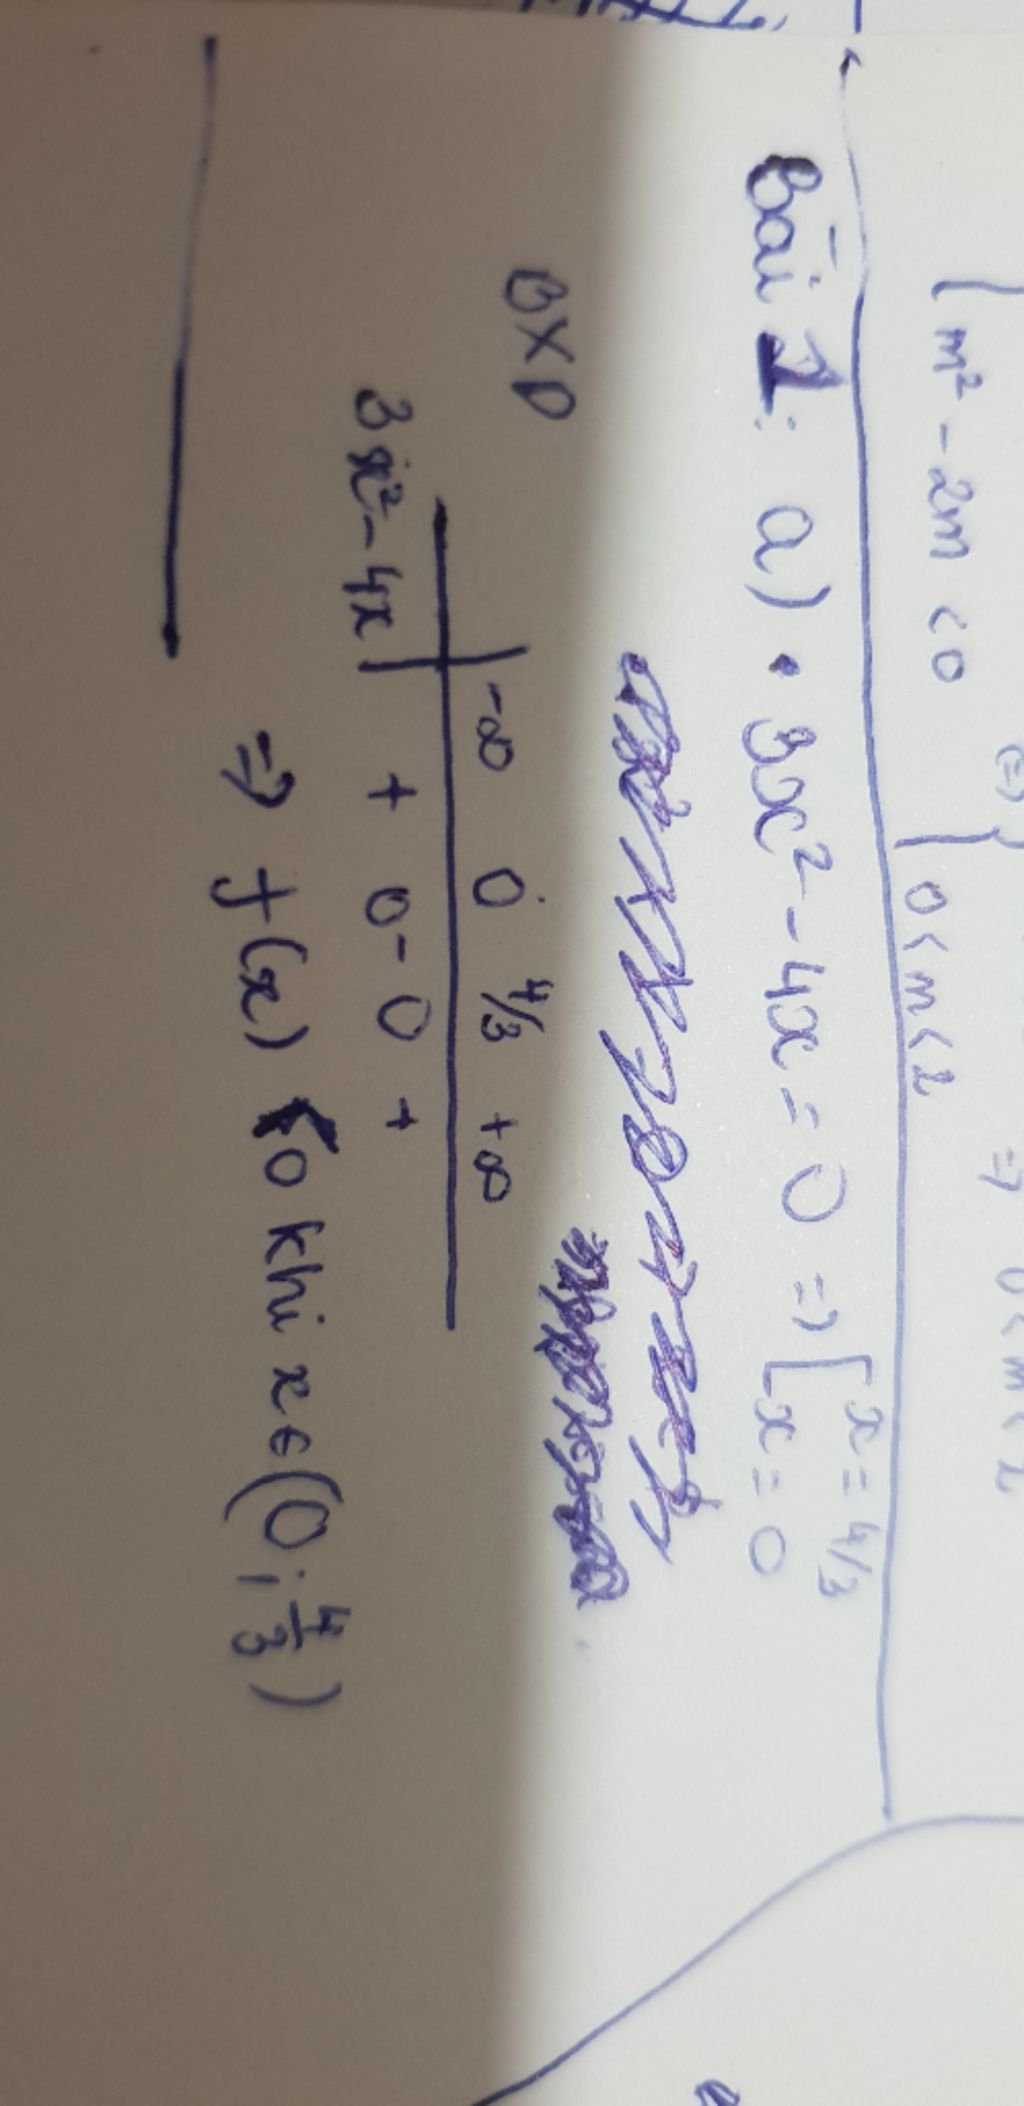 { m² - 2m < 0
(=) { 0 < m < 2
=> 0 < m < 2
Bài 1: a) • 3x² - 4x = 0 => [ x = 4/3
x = 0
BXD
-∞ 0 4/3 +∞
3x² - 4x + 0 - 0 +
=> f(x) < 0 khi x ∈ (0; 4/3)